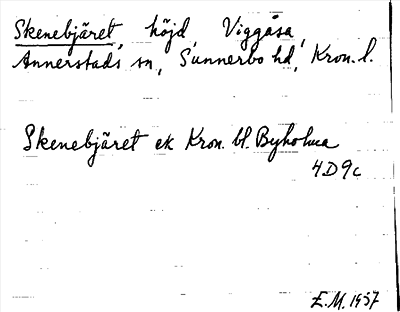 Skenebjäret, höjd, Viggåsa,
Annerstads sn, Sunnerbo hd, Kron. l.
Skenebjäret ek Kron. bl. Byholma
4D9c
E.M. 1957